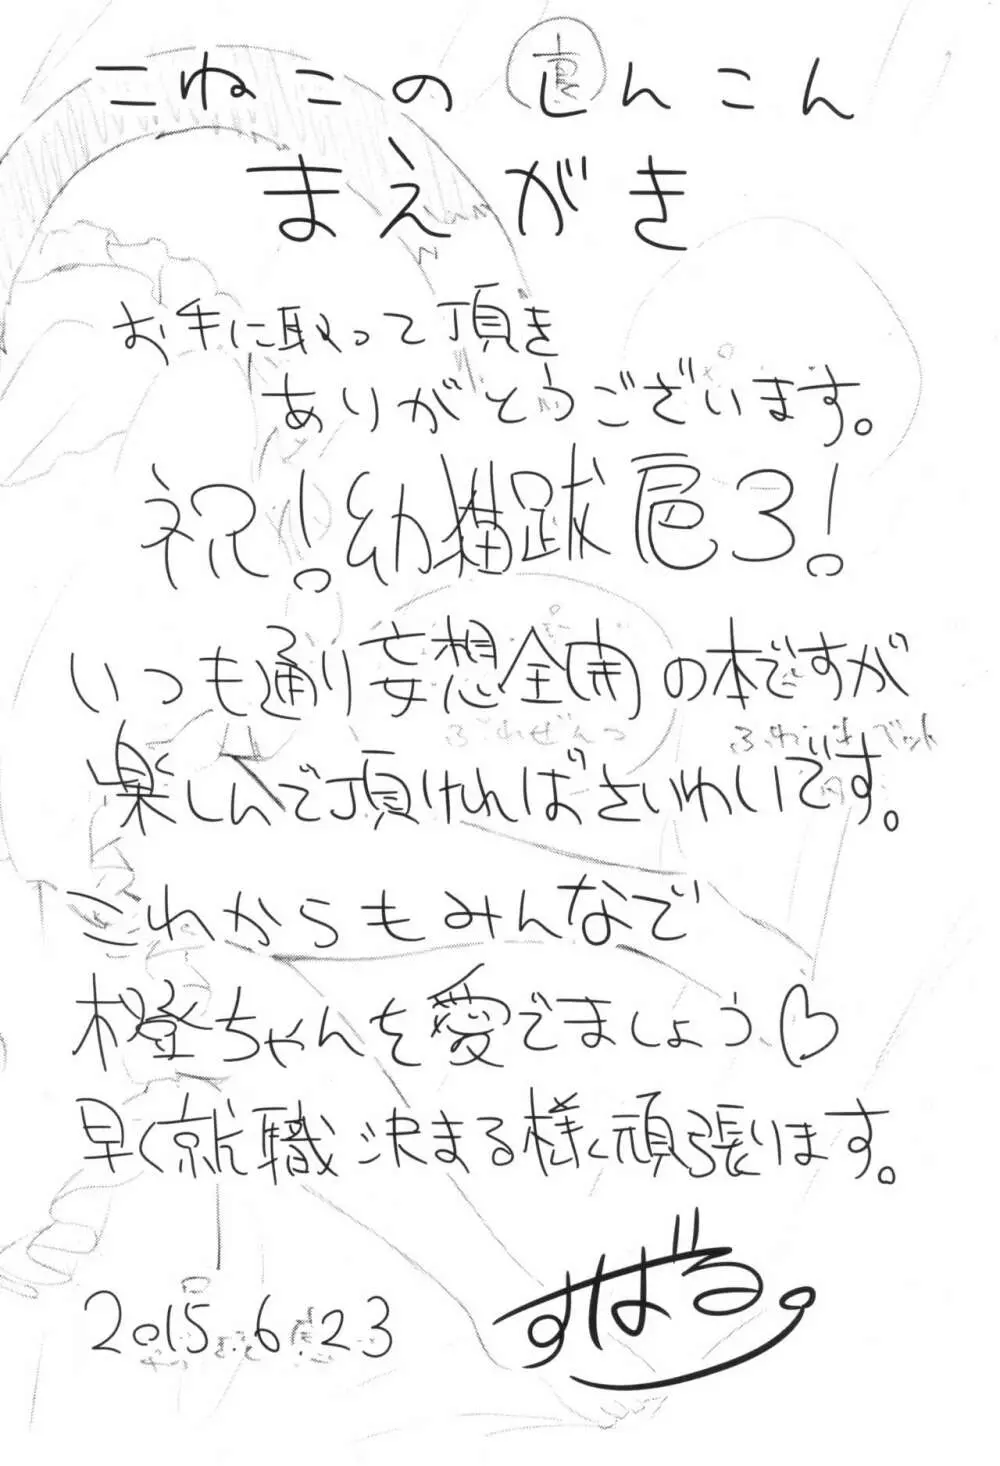 こねこの裏んこん
まえがき
お手に取って頂き
ありがとうございます。
祝!幼猫跋扈3!
いつも通り妄想全開の本ですが
楽しんで頂ければさいわいです。
これからもみんなで
橙ちゃんを愛でましょう♡
早く就職決まる様に頑張ります。
2015.6.23
すばる。